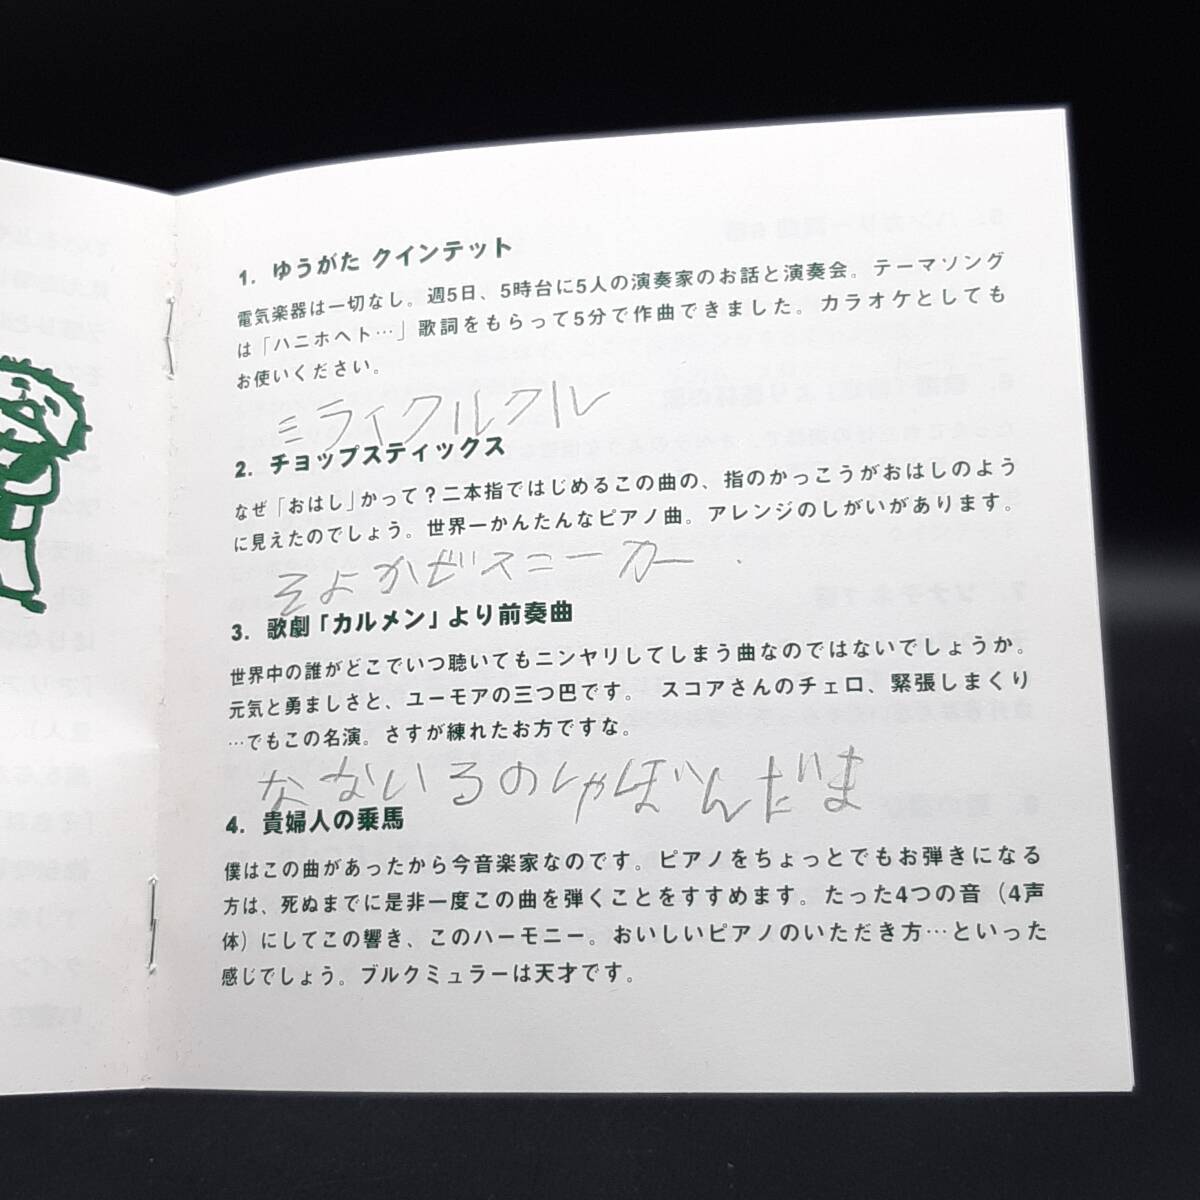 1. ゆうがた クインテット
電気楽器は一切なし。週5日、5時台に5人の演奏家のお話と演奏会。テーマソング
は「ハニホヘト…」歌詞をもらって5分で作曲できました。カラオケとしても
お使いください。
ミライクルクル
2. チョップスティックス
なぜ「おはし」かって？二本指ではじめるこの曲の、指のかっこうがおはしのよう
に見えたのでしょう。世界一かんたんなピアノ曲。アレンジのしがいがあります。
そよかぜスニーカー
3. 歌劇「カルメン」より前奏曲
世界中の誰がどこでいつ聴いてもニンヤリしてしまう曲なのではないでしょうか。
元気と勇ましさと、ユーモアの三つ巴です。 スコアさんのチェロ、緊張しまくり
…でもこの名演。さすが練れたお方ですな。
なないろのしゃぼんだま
4. 貴婦人の乗馬
僕はこの曲があったから今音楽家なのです。ピアノをちょっとでもお弾きになる
方は、死ぬまでに是非一度この曲を弾くことをすすめます。たった4つの音（4声
体）にしてこの響き、このハーモニー。おいしいピアノのいただき方…といった
感じでしょう。ブルクミュラーは天才です。